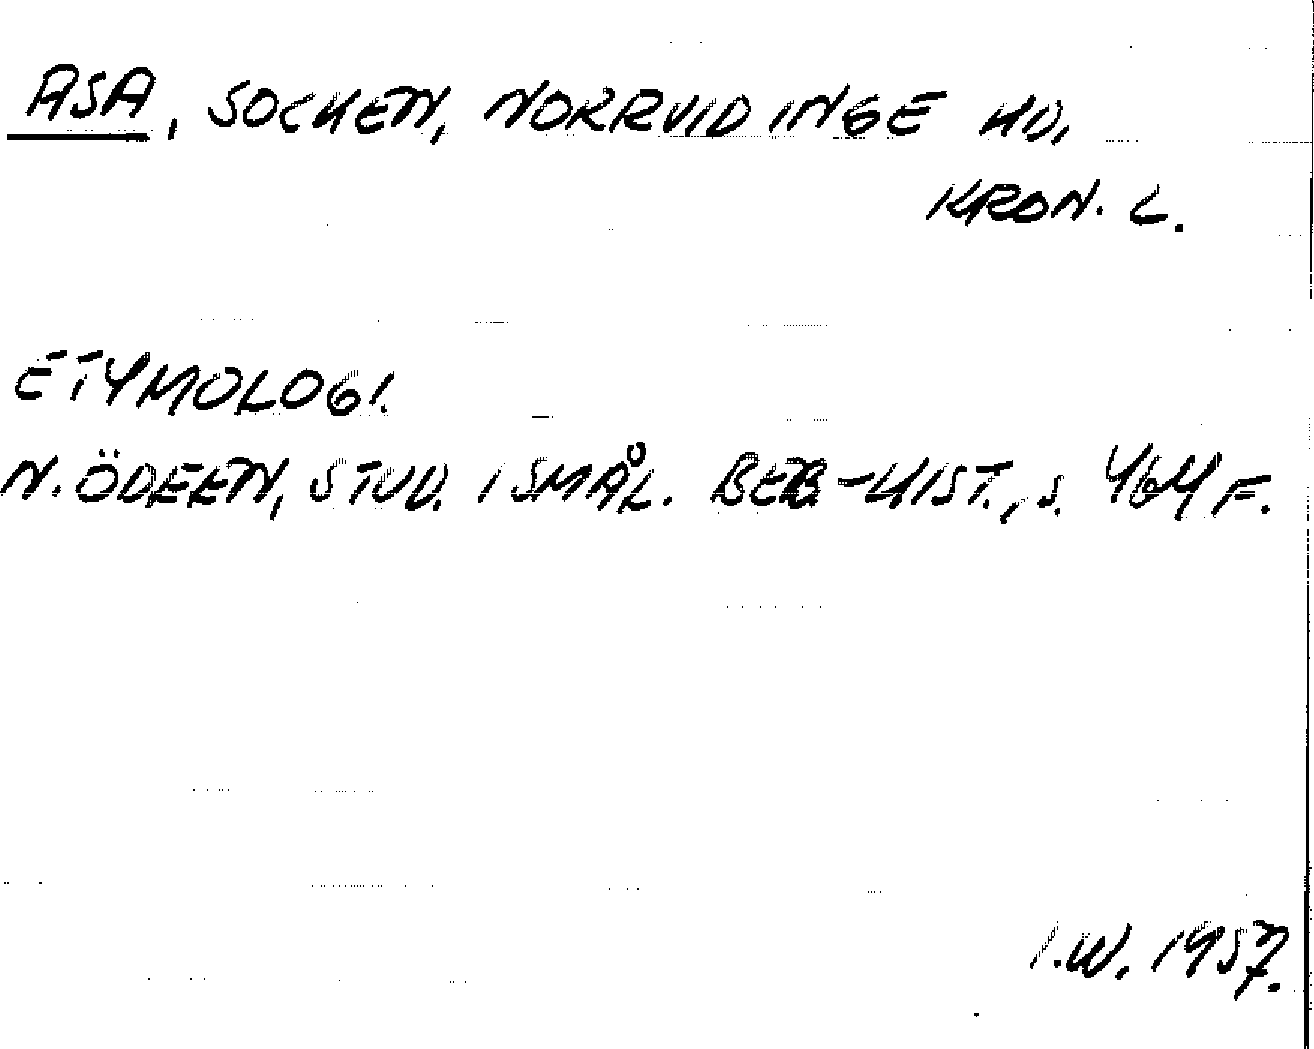 ASA, SOCKEN, NORRVIDINGE HD,
KRON. L.
ETYMOLOGI.
N. ÖDEEN, STUD. I SMÅL. BEB-HIST., S. 464 F.
I.W. 1957.